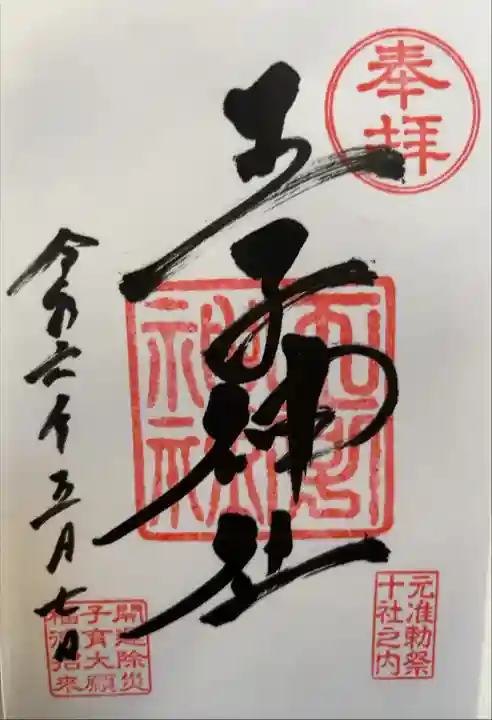 奉拝
王子神社
元准勅祭
十社之内
令和六年五月七日
開運除災
子育大願
招来